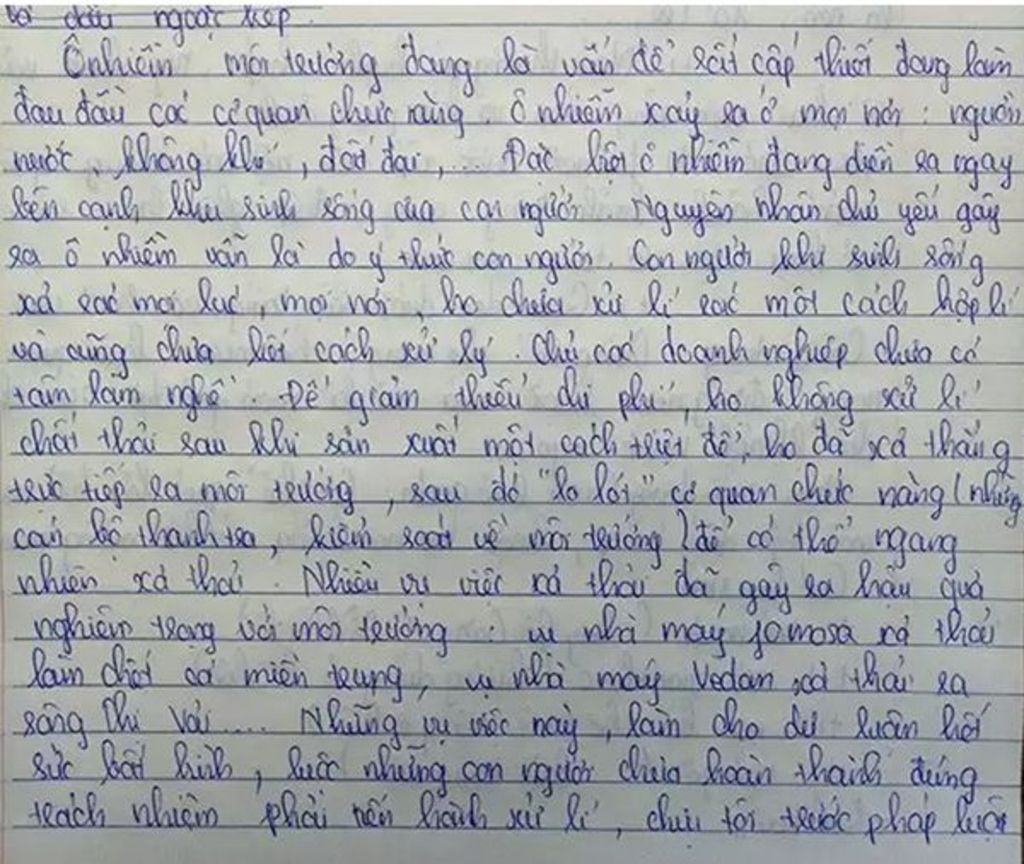 và dấu ngoặc kép.
Ônhiễm môi trường đang là vấn đề rất cấp thiết đang làm
đau đầu các cơ quan chức năng ô nhiễm xảy ra ở mọi nơi : nguồn
nước, không khí, đất đai, ... Đặc biệt ô nhiễm đang diễn ra ngay
bên cạnh khu sinh sống của con người. Nguyên nhân chủ yếu gây
ra ô nhiễm vẫn là do ý thức con người. Con người khi sinh sống
xả rác mọi lúc, mọi nơi, họ chưa xử lí rác một cách hợp lí
và cũng chưa biết cách xử lý. Chủ các doanh nghiệp chưa có
tâm làm nghề. Để giảm thiểu chi phí, họ không xử lí
chất thải sau khi sản xuất một cách triệt để, họ đã xả thẳng
trực tiếp ra môi trường, sau đó "lo lót" cơ quan chức năng (những
cán bộ thanh tra, kiểm soát về môi trường) để có thể ngang
nhiên xả thải. Nhiều vụ việc xả thải đã gây ra hậu quả
nghiêm trọng với môi trường : vụ nhà máy fomosa xả thải
làm chết cá miền trung, vụ nhà máy Vedan xả thải ra
sông Thị Vải.... Những vụ việc này, làm cho dư luận hết
sức bất bình, buộc những con người chưa hoàn thành đúng
trách nhiệm phải tiến hành xử lí, chịu tội trước pháp luật